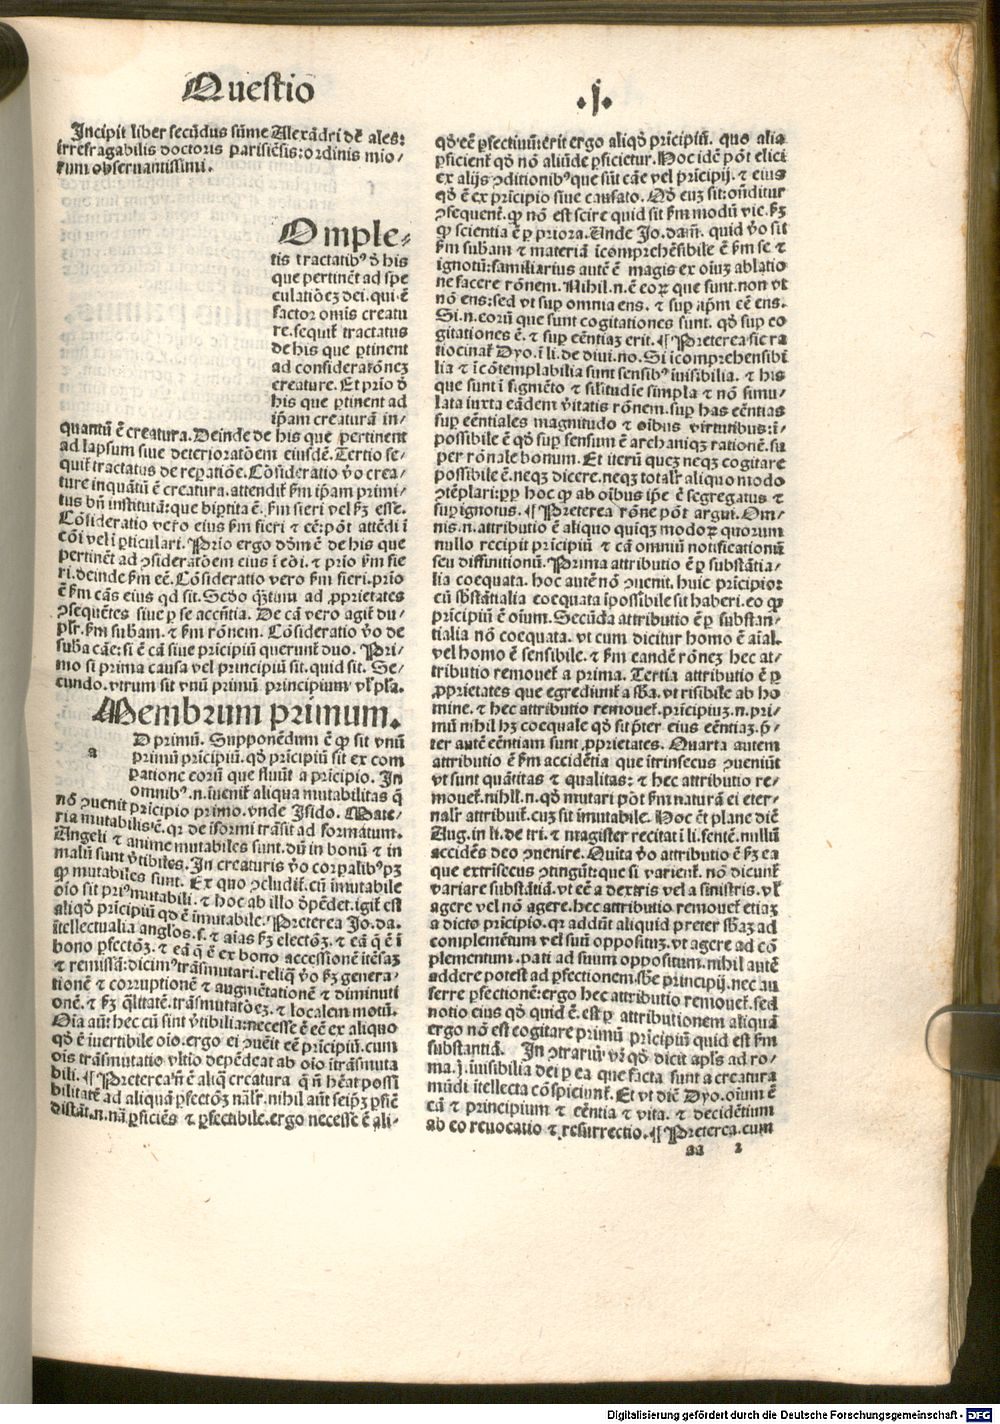 Questio
.j.
Incipit liber secūdus sūme Alexādri dē ales:
irrefragabilis doctoris parisiēsis: ordinis mio/
rum obseruantissimi.
Omple-
tis tractatibꝰ d̄ his
que pertinēt ad spe
culatiōeꝫ dei. qui ē
factor omīs creatu
re. sequit̄ tractatus
de his que ꝑtinent
ad considerarōneꝫ
creature. Et prīo d̄
his que ꝑtinent ad
ip̄am creaturā in/
quantū ē creatura. Deinde de his que pertinent
ad lapsum siue deterioratōem eiusdē. Tertio se-
quit̄ tractatus de reꝑatiōe. Cōsideratio v̄o crea/
ture inquātū ē creatura. attendit̄ ẜm ip̄am primi/
tus bn̄ institutā: que biꝑtita ē. ẜm fieri vel ẜꝫ esse.
Cōsideratio vero eius ẜm fieri ⁊ eē: pōt attēdi ī
cōi vel ī ꝑticulari. Prīo ergo dōm ē de his que
pertinēt ad ꝯsideratōem eius ī cōi. ⁊ prīo ẜm fie
ri. deinde ẜm eē. Cōsideratio vero ẜm fieri. prīo
ē ẜm cās eius qd sit. Scd̄o q̄ꝫtum ad ꝓprietates
ꝯsequētes siue ꝑ se accn̄tia. De cā vero agit̄ du/
pl̄r. ẜm sub̄am. ⁊ ẜm rōnem. Cōsideratio v̄o de
sub̄a cāe: si ē cā siue prīcipiū querunt̄ duo. Pri/
mo si prima causa vel principiū sit. quid sit. Se/
cundo. vtrum sit vnū primū principium vl̓ pl̄a.
Membrum primum.
a
D primū. Supponēdum ē ꝙ sit vnū
primū prīcipiū. qd̄ prīcipiū sit ex com
ꝑatione eorū que fluūt a prīcipio. In
omnibꝰ.n. īuenit̄ aliqua mutabilitas q̄
nō ꝯuenit prīcipio primo. vnde Isido. Mate/
ria mutabilis ē. qꝛ de īformi trāsit ad formatum.
Angeli ⁊ anime mutabiles sunt. dū in bonū ⁊ in
malū sunt v̄tibiles. In creaturis v̄o corꝑalibꝰ pꝫ
ꝙ mutabiles sunt. Ex quo ꝯcludit̄. cū imutabile
oīo sit priꝰ mutabili. ⁊ hoc ab illo d̄pēdet. igit̄ est
aliqd̄ prīcipiū qd ē imutabile. Preterea Jo. da.
ītellectualia anglos.s. ⁊ aīas ẜꝫ electōꝫ. ⁊ eā q̄ ē ī
bono ꝑfectōꝫ. ⁊ eā q̄ ē ex bono accessionē itēsaꝫ
⁊ remissā: dicimꝰ trāsmutari. reliq̄ v̄o ẜꝫ genera/
tionē ⁊ corruptionē ⁊ augmētationē ⁊ diminuti
onē. ⁊ ẜꝫ q̄litatē. trāsmutatōeꝫ. ⁊ localem motū.
Oīa aūt hec cū sint v̄tibilia: necesse ē eē ex aliquo
qd̄ ē īuertibile oīo. ergo ei ꝯueit eē prīcipiū. cum
oīs trāsmutatio vltīo depēdeat ab oīo ītrāsmuta
bili. ¶ Preterea n̄ ē aliq̄ creatura q̄ n̄ hēat possi
bilitatē ad aliquā ꝑfectōꝫ nāl̄r. nihil aūt seip̄ꝫ ꝑficē
distāt.n. nā ꝑficiēs ⁊ ꝑfectibile. ergo necesse ē ali-
qd̄ eē ꝑfectiuū: erit ergo aliqd̄ prīcipiū. quo alia
ꝑficient̄ qd̄ nō aliūde ꝑficietur. Hoc idē pōt elici
ex alijs ꝯditionibꝰ que sūt cāe vel prīcipij. ⁊ eius
qd̄ ē ex prīcipio siue causato. Qd̄ euꝫ sit: on̄ditur
ꝯsequent̄. ꝙ nō est scire quid sit ẜm modū vie. ẜꝫ
ꝙ scientia ē ꝑ priora. Unde Jo. dam̄. quid v̄o sit
ẜm sub̄am ⁊ materiā īcomprehēsibile ē ẜm se ⁊
ignotū: familiarius autē ē magis ex oīuꝫ ablatio
ne facere rōnem. Nihil.n. ē eoꝝ que sunt. non vt
nō ens: sed vt sup omnia ens. ⁊ sup ip̄m eē ens.
Si.n. eorū que sunt cogitationes sunt. qd̄ sup co
gitationes ē. ⁊ sup eēntiaꝫ erit. ¶ Preterea sic ra
tiocinat̄ Dyo. ī li. de diui. no. Si īcomprehensibi
lia ⁊ īcōtemplabilia sunt sensibꝰ īuisibilia. ⁊ his
que sunt ī figmēto ⁊ silitudīe simpla ⁊ nō simu/
lata iuxta eādem v̄itatis rōnem. suꝑ has eēntias
suꝑ eēntiales magnitudo ⁊ oībus virtutibus: ī/
possibile ē qd̄ suꝑ sensum ē archaniqꝫ rationē. su
per rōnale bonum. Et iterū queꝫ neqꝫ cogitare
possibile ē. neqꝫ dicere. neqꝫ total̓r aliquo modo
ꝯtēplari: ꝓp̄ hoc ꝙ ab oībus ip̄e ē segregatus ⁊
suꝑignotus. ¶ Preterea rōne pōt argui. Om-
nis.n. attributio ē aliquo quīqꝫ modoꝝ quorum
nullo recipit prīcipiū ⁊ cā omniū notificationū
seu diffinitionū. Prima attributio ē ꝑ substātia/
lia coequata. hoc autē nō ꝯuenit. huic prīcipio:
cū sb̄stātialia coequata īpossibile sit haberi. eo ꝙ
prīcipiū ē oīum. Secūda attributio ē ꝑ substan-
tialia nō coequata. vt cum dicitur homo ē aīal.
vel homo ē sensibile. ⁊ ẜm eandē rōneꝫ hec at/
tributio remouet̄ a prima. Tertia attributio ē ꝑ
ꝓprietates que egrediunt̄ a sb̄a. vt risibile ab ho
mine. ⁊ hec attributio remouet̄. prīcipiuꝫ.n. pri-
mū nihil hꝫ coequale qd̄ sit p̄ter eius eēntiaꝫ. p̄/
ter autē eēntiam sunt ꝓprietates. Quarta autem
attributio ē ẜm accidētia que ītrinsecus ꝯueniūt
vt sunt quātitas ⁊ qualitas: ⁊ hec attributio re-
mouet̄. nihil̓.n. qd̄ mutari pōt ẜm naturā ei eter-
nal̓r attribuit̄. cuꝫ sit imutabile. Hoc ēt plane diē
Aug. in li. de tri. ⁊ magister recitat ī li. sentē. nullū
accidēs deo ꝯuenire. Quita v̄o attributio ē ẜꝫ ea
que extrīsecus ꝯtingūt: que si varient̄. nō dicunt̄
variare substātiā. vt eē a dextris vel a sinistris. vl̓
agere vel nō agere. hec attributio remouet̄ etiaꝫ
a dicto prīcipio. qꝛ addūt aliquid preter sb̄aꝫ ad
complemētum vel suū oppositūꝫ. vt agere ad cō
plementum. pati ad suum oppositum. nihil autē
addere potest ad ꝑfectionem. sb̄e principij. nec au
ferre ꝑfectionē: ergo hec attributio remouet̄. sed
notio eius qd̄ quid ē. est ꝑ attributionem aliquā
ergo nō est cogitare primū prīcipiū quid est ẜm
substantiā. In ꝯtrariū vr̄ qd̄ dicit apl̄s ad ro/
ma.j. inuisibilia dei ꝑ ea que facta sunt a creatura
mūdi ītellecta cōspiciunt̄. Et vt diē Dyo. oīum ē
cā ⁊ principium ⁊ eēntia ⁊ vita. ⁊ decidētium
ab eo reuocatio ⁊ resurrectio. ¶ Preterea. cum
aa 2
Digitalisierung gefördert durch die Deutsche Forschungsgemeinschaft - DFG